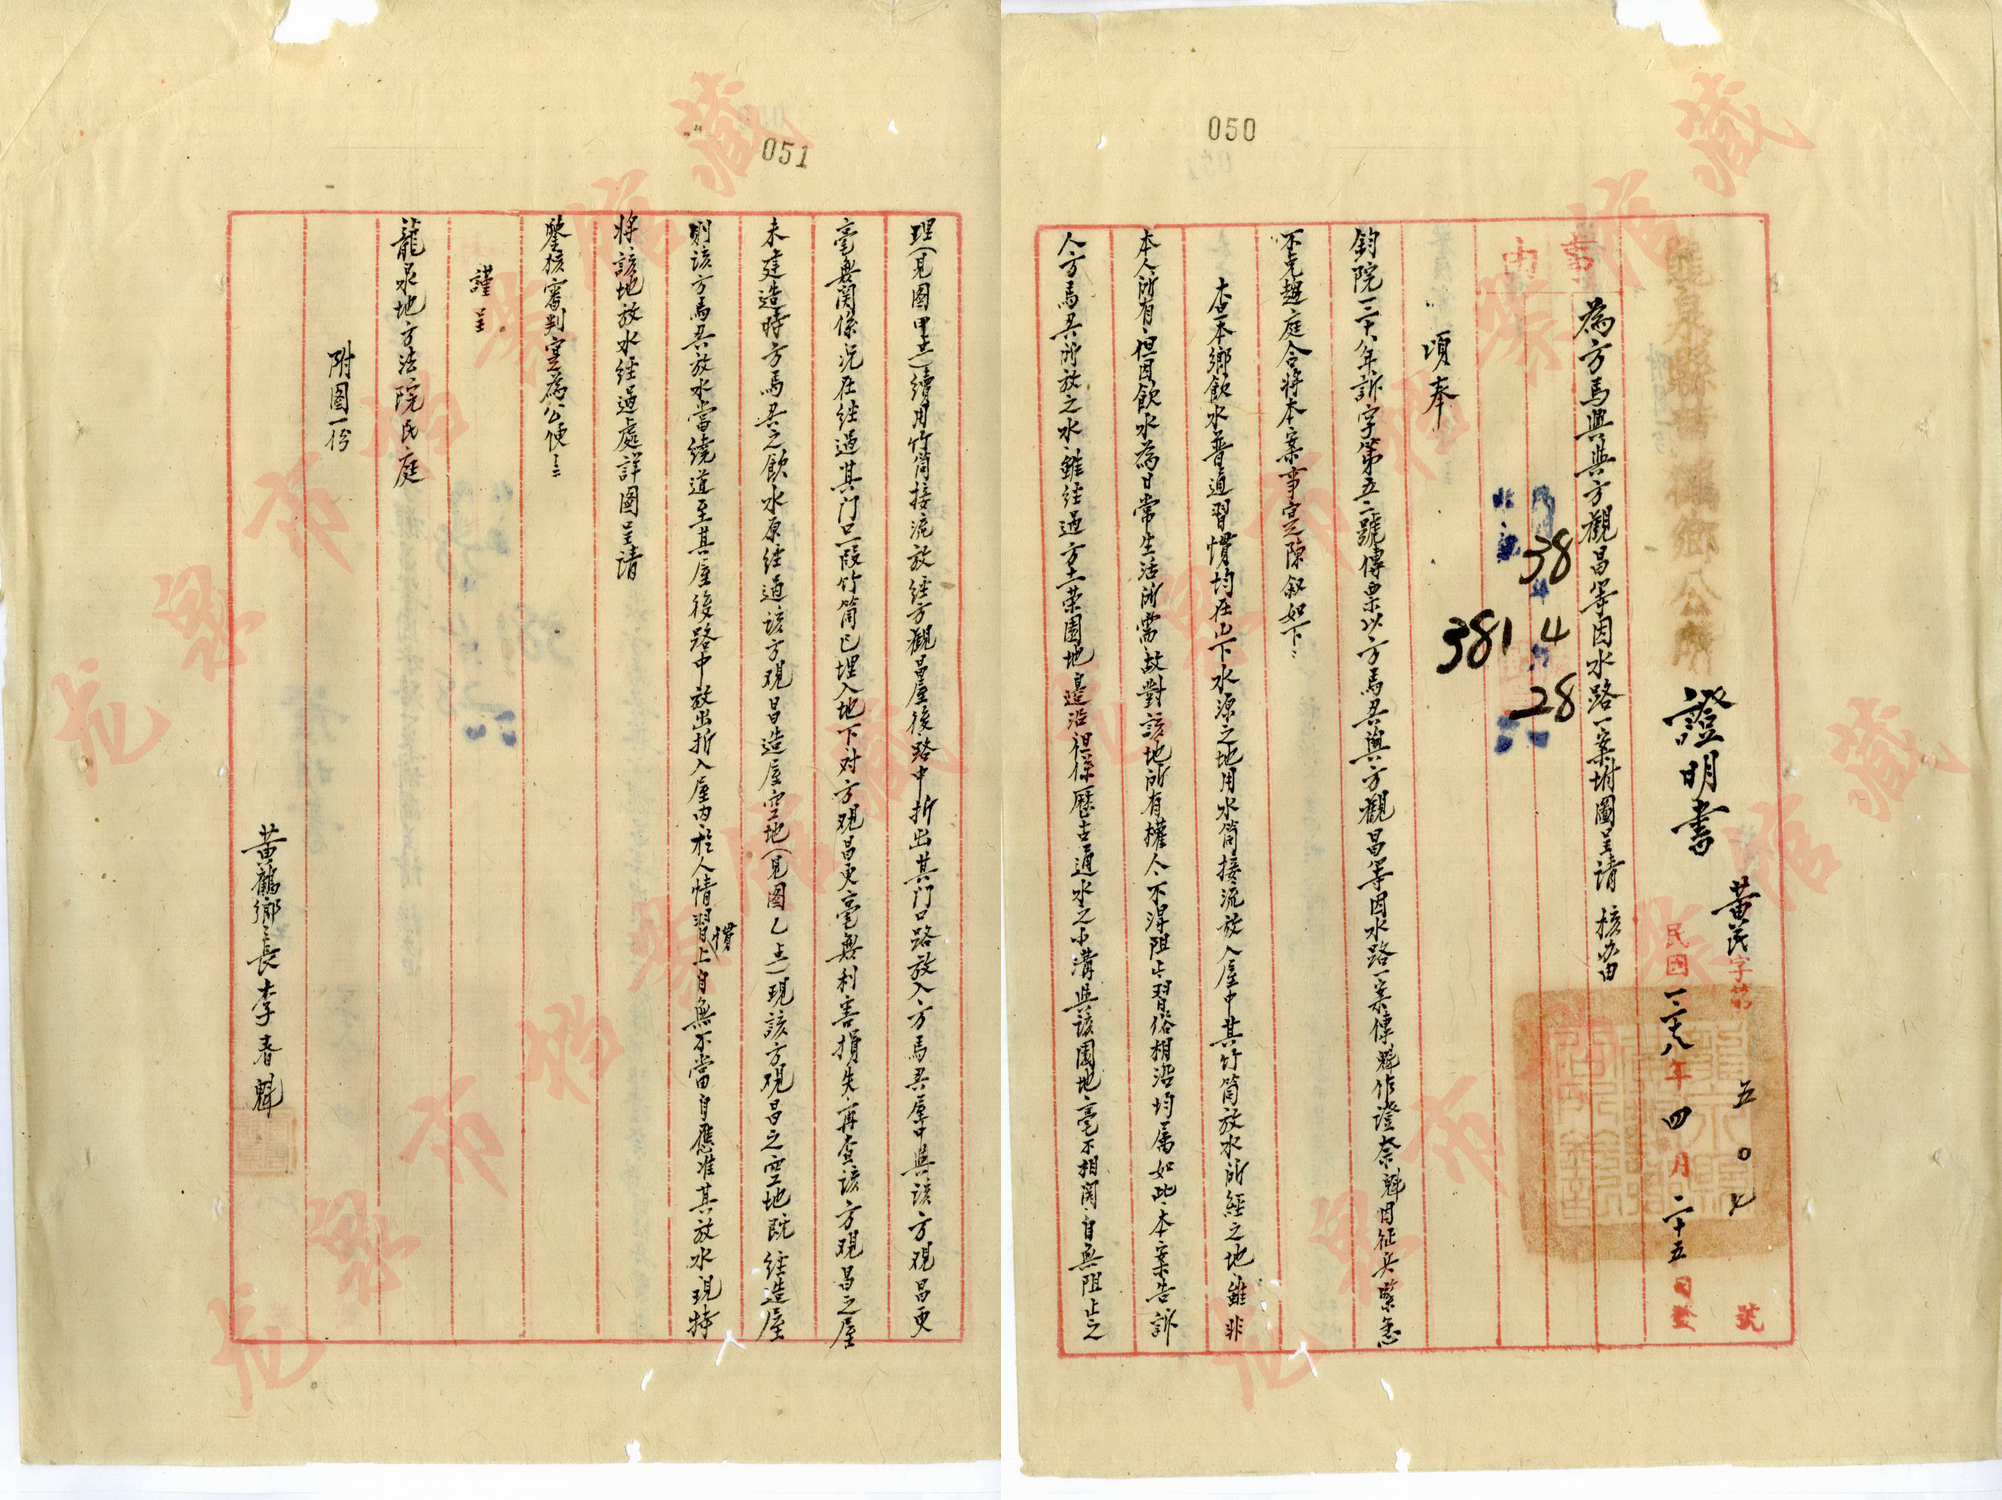 050
龍泉縣黃鶴鄉公所 證明書
黃民字第 五〇七 號
民國三十八年四月二十五日發
事由
為方馬興與方觀昌等因水路一案坿圖呈請 核辦由
38 4 28
381
頃奉
鈞院三十八年訴字第五二號傳票以方馬興與方觀昌等因水路一案傳魁作證奈魁因征兵緊急
不克趨庭合將本案事實陳叙如下：
本查本鄉飲水普通習慣均在山下水源之地用水筒接流放入屋中其竹筒放水所經之地雖非
本人所有，但因飲水為日常生活所需故對該地所有權人不得阻止習俗相沿均属如此，本案告訴
人方馬興所放之水，雖经過方土荣園地邊沿但係歷古通水之小溝與該園地毫不相関自無阻止之
051
理（見圖甲点）續用竹筒接流放經方觀昌屋後路中折出其門口路放入方馬興屋中與該方观昌更
毫無関係况在經過其門口一段竹筒已埋入地下对方观昌更毫無利害損失，再查該方观昌之屋
未建造時方馬興之飲水原经過該方观昌造屋空地（見圖乙点）現該方观昌之空地既經造屋
則該方馬興放水當繞道至其屋後路中放出折入屋内於人情習慣上自無不當自應准其放水現特
將該地放水经過處詳圖呈请
鑒核審判寔為公便
謹呈
龍泉地方法院民庭
附圖一份
黃鶴鄉鄉長李春魁
龙泉市档案馆藏
龙泉市档案馆藏
龙泉市档案馆藏
龙泉市档案馆藏